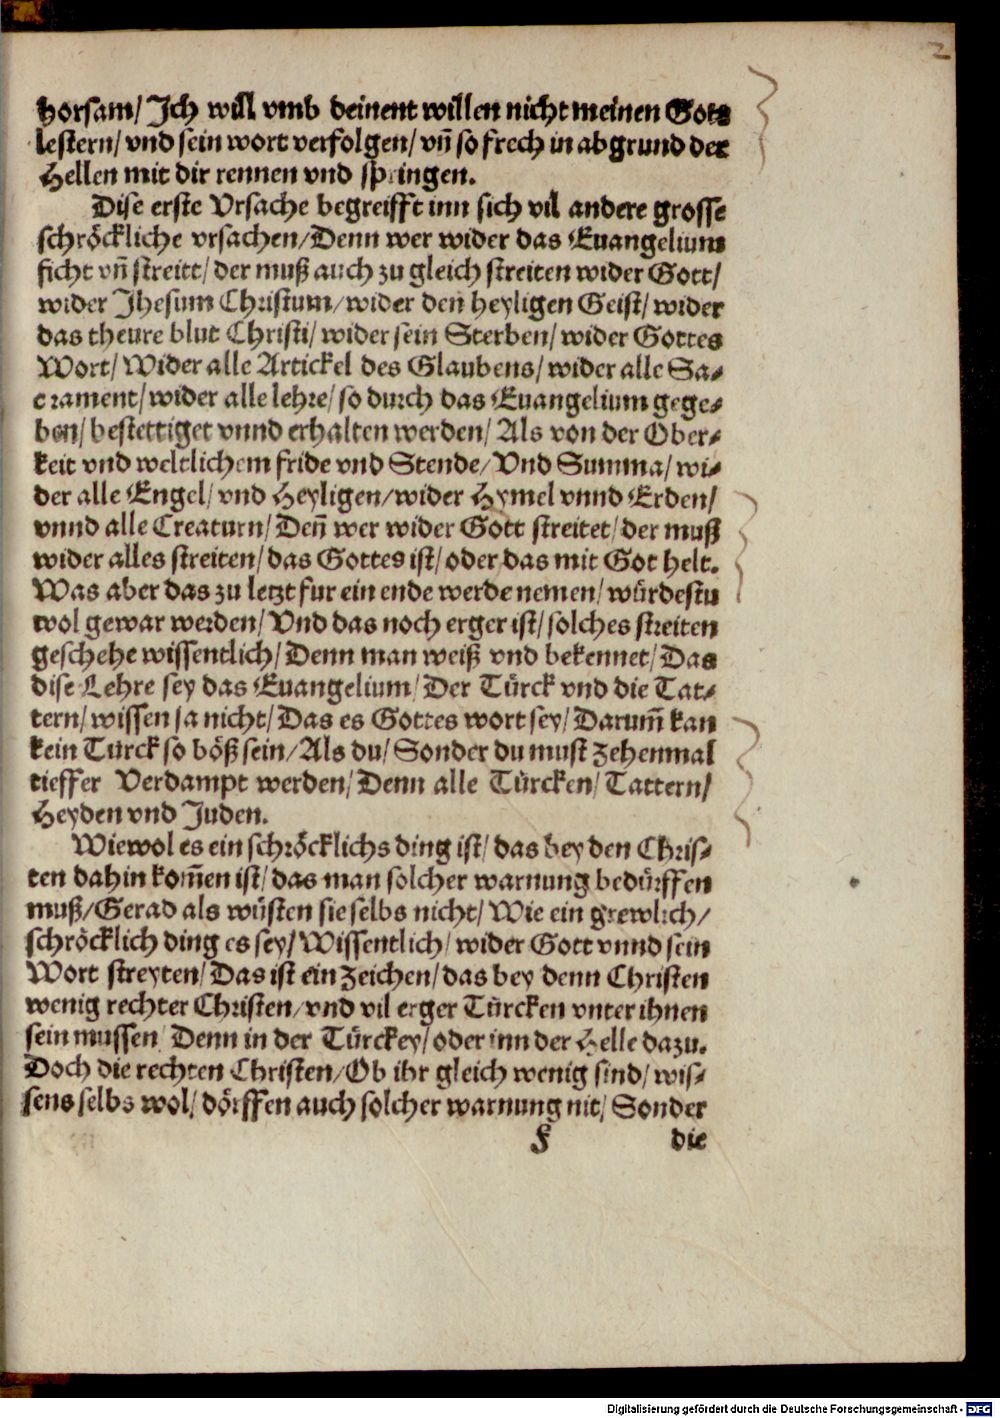 2
horsam/ Jch will vmb deinent willen nicht meinen Gott
lestern/ vnd sein wort verfolgen/ vn̄ so frech in abgrund der
Hellen mit dir rennen vnd springen.
Dise erste Vrsache begreifft inn sich vil andere grosse
schröckliche vrsachen/ Denn wer wider das Euangelium
ficht vn̄ streitt/ der muß auch zu gleich streiten wider Gott/
wider Jhesum Christum/ wider den heyligen Geist/ wider
das theure blut Christi/ wider sein Sterben/ wider Gottes
Wort/ Wider alle Artickel des Glaubens/ wider alle Sa⸗
crament/ wider alle lehre/ so durch das Euangelium gege⸗
ben/ bestettiget vnnd erhalten werden/ Als von der Ober⸗
keit vnd weltlichem fride vnd Stende/ Vnd Summa/ wi⸗
der alle Engel/ vnd Heyligen/ wider Hymel vnnd Erden/
vnnd alle Creaturn/ Den̄ wer wider Gott streitet/ der muß
wider alles streiten/ das Gottes ist/ oder das mit Got helt.
Was aber das zu letzt fur ein ende werde nemen/ würdestu
wol gewar werden/ Vnd das noch erger ist/ solches streiten
geschehe wissentlich/ Denn man weiß vnd bekennet/ Das
dise Lehre sey das Euangelium/ Der Türck vnd die Tat⸗
tern/ wissen ja nicht/ Das es Gottes wort sey/ Darum̄ kan
kein Türck so böß sein/ Als du/ Sonder du must zehenmal
tieffer Verdampt werden/ Denn alle Türcken/ Tattern/
Heyden vnd Juden.
Wiewol es ein schröcklichs ding ist/ das bey den Chris⸗
ten dahin kom̄en ist/ das man solcher warnung bedürffen
muß/ Gerad als wüsten sie selbs nicht/ Wie ein grewlich/
schröcklich ding es sey/ Wissentlich/ wider Gott vnnd sein
Wort streyten/ Das ist ein zeichen/ das bey denn Christen
wenig rechter Christen/ vnd vil erger Türcken vnter ihnen
sein mussen/ Denn in der Türckey/ oder inn der Helle dazu.
Doch die rechten Christen/ Ob ihr gleich wenig sind/ wis⸗
sens selbs wol/ dörffen auch solcher warnung nit/ Sonder
F die
Digitalisierung gefördert durch die Deutsche Forschungsgemeinschaft - DFG